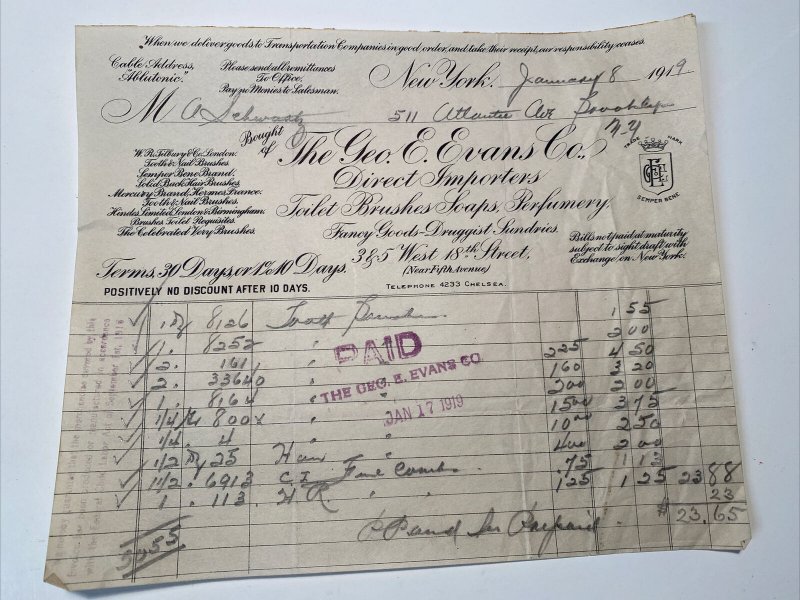 When we deliver goods to Transportation Companies in good order, and take their receipt, our responsibility ceases.
Cable Address, "Ablutonic."
Please send all remittances To Office. Pay no Monies to Salesman.
New York. January 8 1919
M A Schwartz 511 Atlantic Ave Brooklyn
N.Y
Bought of The Geo. E. Evans Co.,
Direct Importers
Toilet Brushes Soaps, Perfumery,
Fancy Goods-Druggist Sundries.
3 & 5 West 18th Street,
(Near Fifth Avenue)
TELEPHONE 4233 CHELSEA.
W. R. Tilbury & Co. London.
Tooth & Nail Brushes.
Semper Bene Brand.
Solid Back Hair Brushes.
Mercury Brand, Hermes, France:
Tooth & Nail Brushes.
Hindes Limited, London & Birmingham.
Brushes Toilet Requisites.
The Celebrated Very Brushes.
TRADE MARK
SEMPER BENE
Bills not paid at maturity subject to sight draft with Exchange on New York.
Terms, 30 Days, or 1% 10 Days.
POSITIVELY NO DISCOUNT AFTER 10 DAYS.
1 Dz 8126 Tooth 1 55
1. 8252 " 2 00
2. 161 " 225 4 50
2. " 160 3 20
1. 8164 " 200 2 00
1/4 800 " 1500 3 75
1/4 4 " 1000 2 50
1/2 Dz 25 400 2 00
1 1/2 6913 C I Fine Combs .75 1 12
1 . 113 H R " " 125 1 25 23 88
23
23.65
PAID
THE GEO. E. EVANS CO.
JAN 17 1919